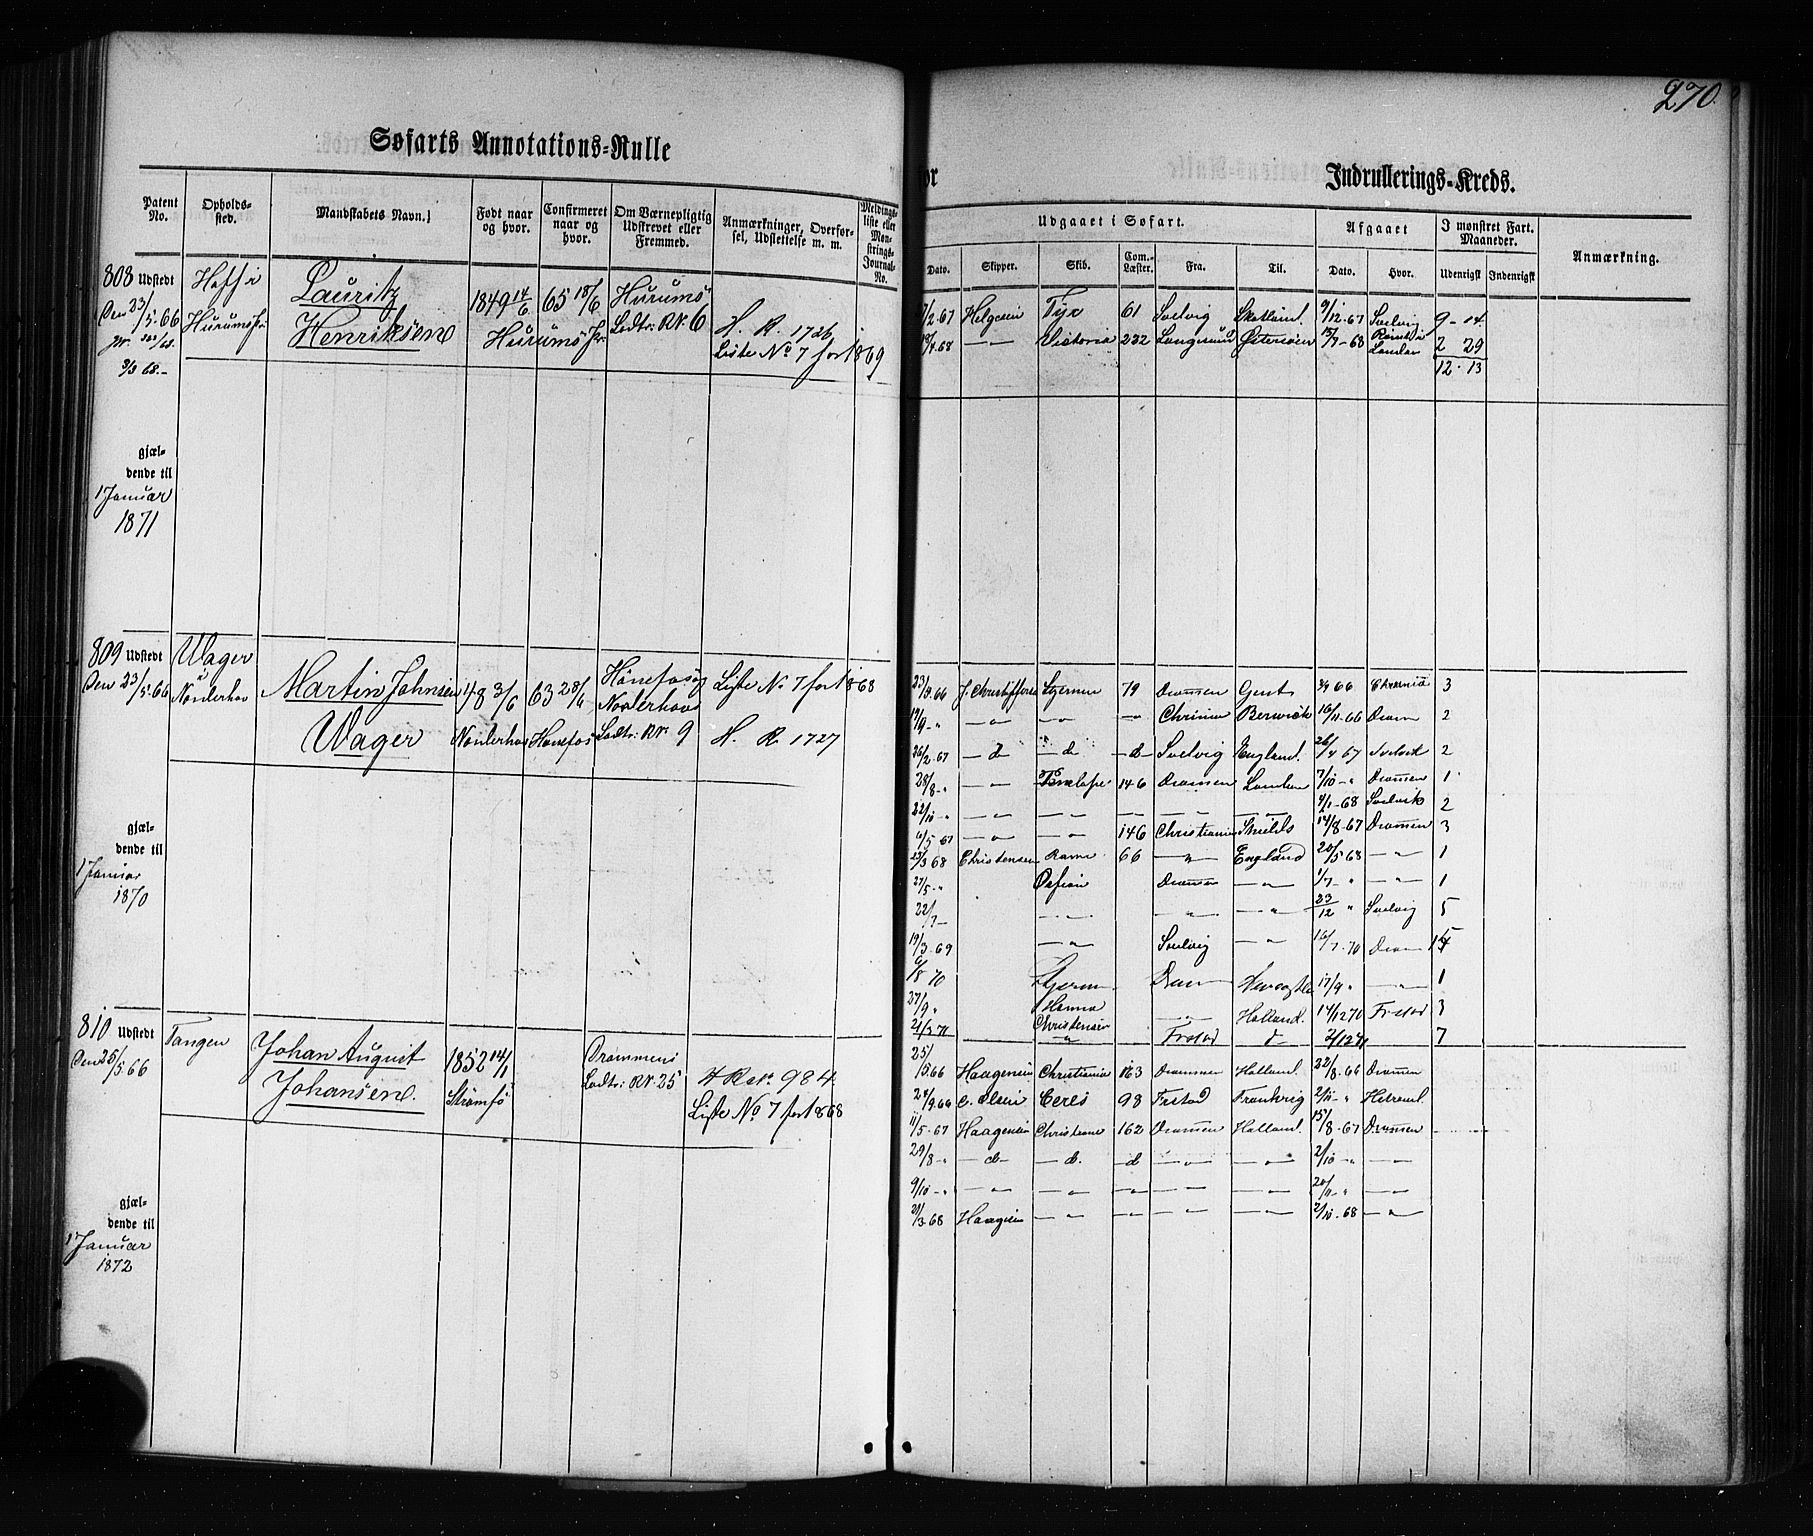 270.
Søfarts Annotations-Rulle
Indrullerings-Kreds.
Patent No.
Opholds-sted.
Mandskabets Navn.
Født naar og hvor.
Confirmeret naar og hvor.
Om Værnepligtig Udskrevet eller Fremmed.
Anmærkninger, Overførsel, Udslettelse m. m.
Meldings-liste eller Mønstrings-Journal-No.
Udgaaet i Søfart.
Afgaaet
I mønstret Fart. Maaneder.
Anmærkning.
Dato.
Skipper.
Skib.
Com.-Læster.
Fra.
Til.
Dato.
Hvor.
Udenrigst
Indenrigst
808 Udstedt
Den 23/5.66
3/3 68.
Hurumsf.
Lauritz
Henriksen
1849 14/6
Hurums
65 18/6
Hurums
Lodtr: No. 6
H. R. 1726
Liste No 7 for 1869
gjæl-
dende til
1 Januar
1871
/2.67 Helgesen 61 Svelvig Skotland. 9/12.67 Svelvig 9-14
/4 68 Victoria 232 Langesund Østersøen 15/7-68 2 29
12.13
809 Udstedt
Den 23/5.66
Wager
i
Norderhov
Martin Johnsen
Wager
48 3/6
Norderhov
63 28/6
Hønefos
Hønefos og
Norderhovs
Lodtr: No. 9
Liste No 7 for 1868
H. R. 1727
gjæl-
dende til
1 Januar
1870
23/5.66 J. Christoffersen 79 Drammen Gent 66 3
19/9-" Berwick 16/11.66 Dram 2
26/2.67 -d- -d- -d- Svelvig England. 26/4 67 Svelvik 2
28/8-" 146 Drammen London 7/10-" Drammen 1
22/10-" /1-68 Svelvik 2
/5 67 146 Christiania Shields 14/8-67 Drammen 3
/3 68 Christensen 66 England 20/5 68 1
27/5-" Drammen 1/7-" 1
22/7- 23/12 " Svelvig 5
19/3.69 Svelvig 16/7.70 Dram
/8 70 Dram 17/9 " 1
27/9 " Hanna Holland. 14/12 70 Frstad 3
21/3 71 Christensen Frstad d 2/12 71 7
810 Udstedt
Den 25/5.66
Tangen
Johan August
Johansen.
1852 14/1
Strømsø
Drammens
Lodtr: No. 25
984
Liste No 7 for 1868
gjæl-
dende til
1 Januar
1872
25/5.66 Haagensen Christiania 163 Drammen Holland. 22/8.66 Drammen
24/9.66 C. Olsen Ceres 98 Frstad Frankrig 2/11-"
11/5-67 Haagensen Christiania 162 Drammen Holland. 15/8-67 Drammen
29/8-" -d- -d- -d 2/10-"
9/10-" 20/11-"
21/3.68 Haagensen 2/10-68